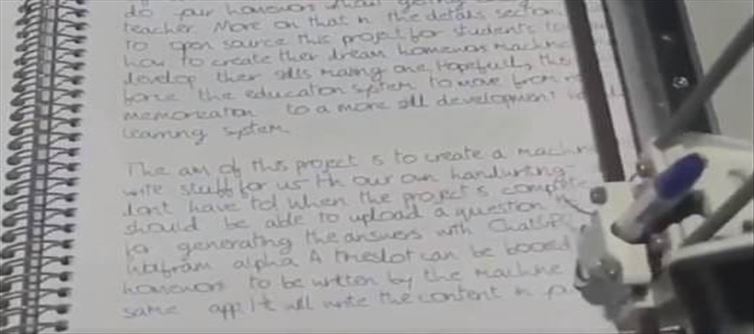 do your homework
teacher. More on that in the details section.
to open source this project for students to
how to create their dream homework machine
develop their skills making one. Hopefully, this
force the education system to move from
memorization to a more skill development
learning system.
The aim of this project is to create a machine
write stuff for us in our own handwriting
dont have to! When the project is complete
should be able to upload a question
for generating the answers with ChatGP
Wolfram alpha A timeslot can be booked
homework to be written by the machine
same app. It will write the content in